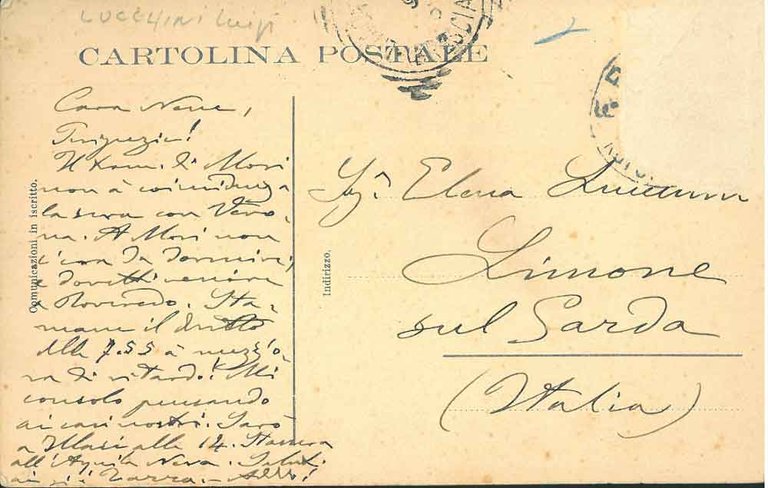 LUCCHINI Luigi
CARTOLINA POSTALE
Comunicazioni in iscritto.
Indirizzo.
Cara Nene,
Il tram di Mori
non à coincidenza
la sera con Vero-
na. A Mori non
c'era da dormire,
e dovetti venire
a Rovereto. Sta-
mane il diretto
delle 7.55 à mezz'o-
ra di ritardo! Mi
consolo pensando
ai casi nostri. Sarò
a alle 14. Stassera
all'Aquila Nera. Saluti
ai
Sig.ª Elena
Limone
sul Garda
(Italia)